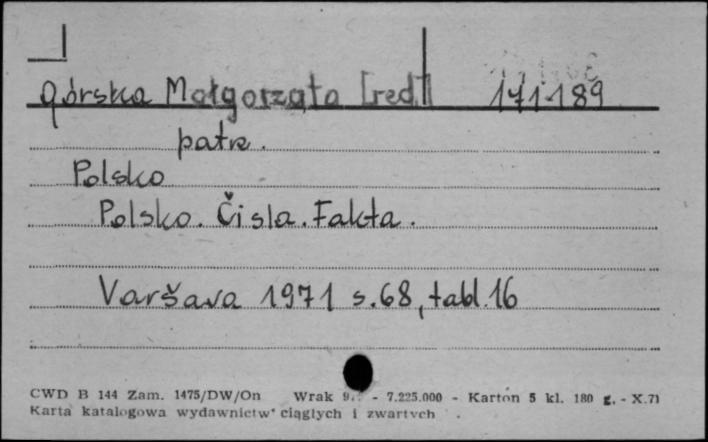 Górska Małgorzata [red.] 171189
patrz.
Polsko
Polsko. Čisla. Fakta.
Varšava 1971 s. 68, tabl. 16
CWD B 144 Zam. 1475/DW/On Wrak - 7.225.000 - Karton 5 kl. 180 g. - X.71
Karta katalogowa wydawnictw ciągłych i zwartych